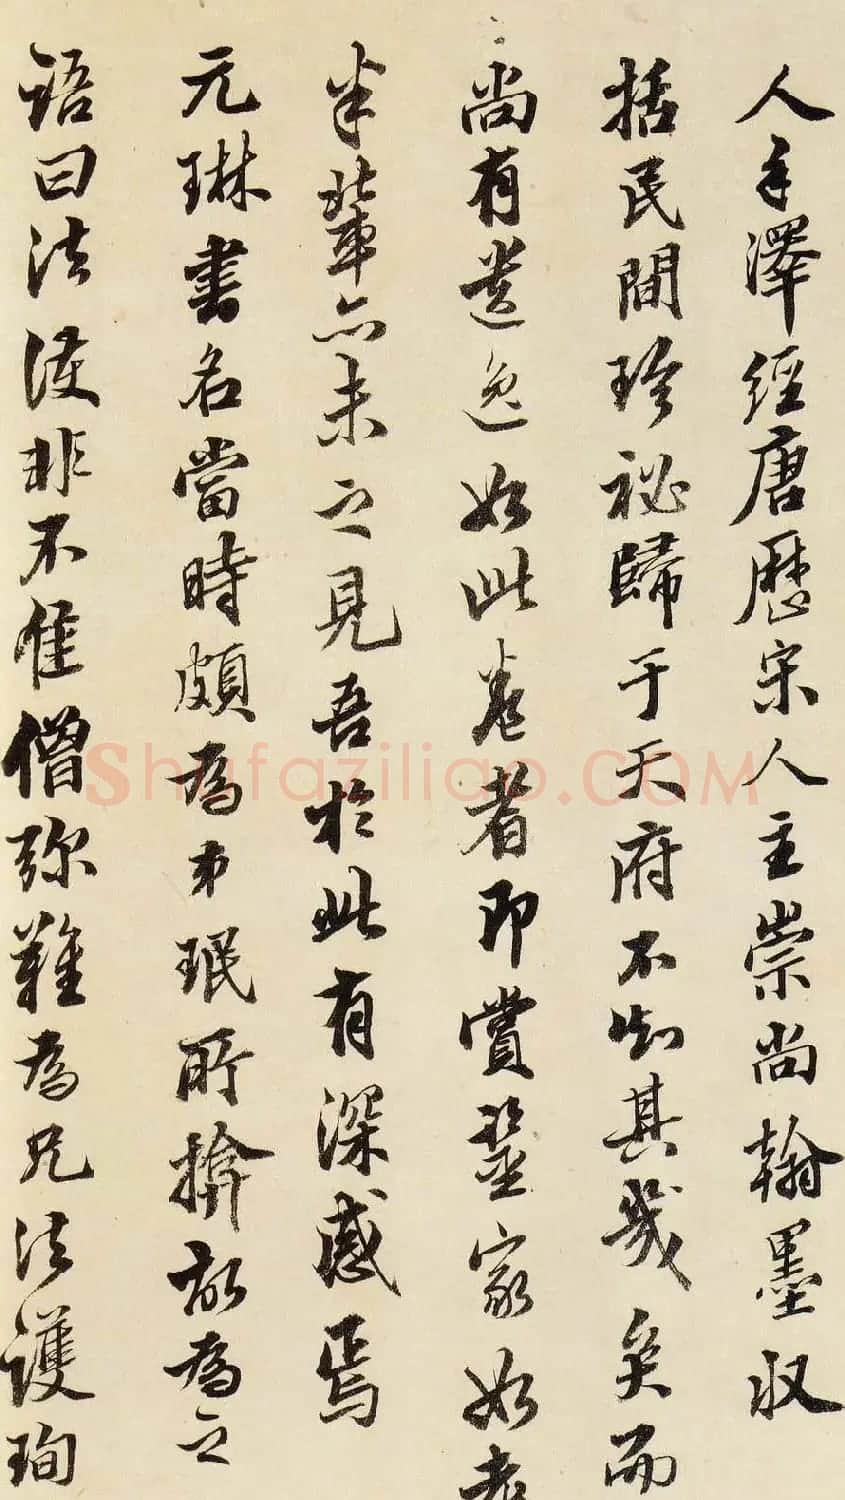 人手澤經唐歷宋人主崇尚翰墨収
括民間珍祕歸于天府不知其幾矣而
尚有遺逸如此卷者即賞鑒家如老
米輩亦未之見吾於此有深感焉
元琳書名當時頗為弟珉所揜故為之
語曰法護非不佳僧彌難為兄法護珣
Shufaziliao.COM